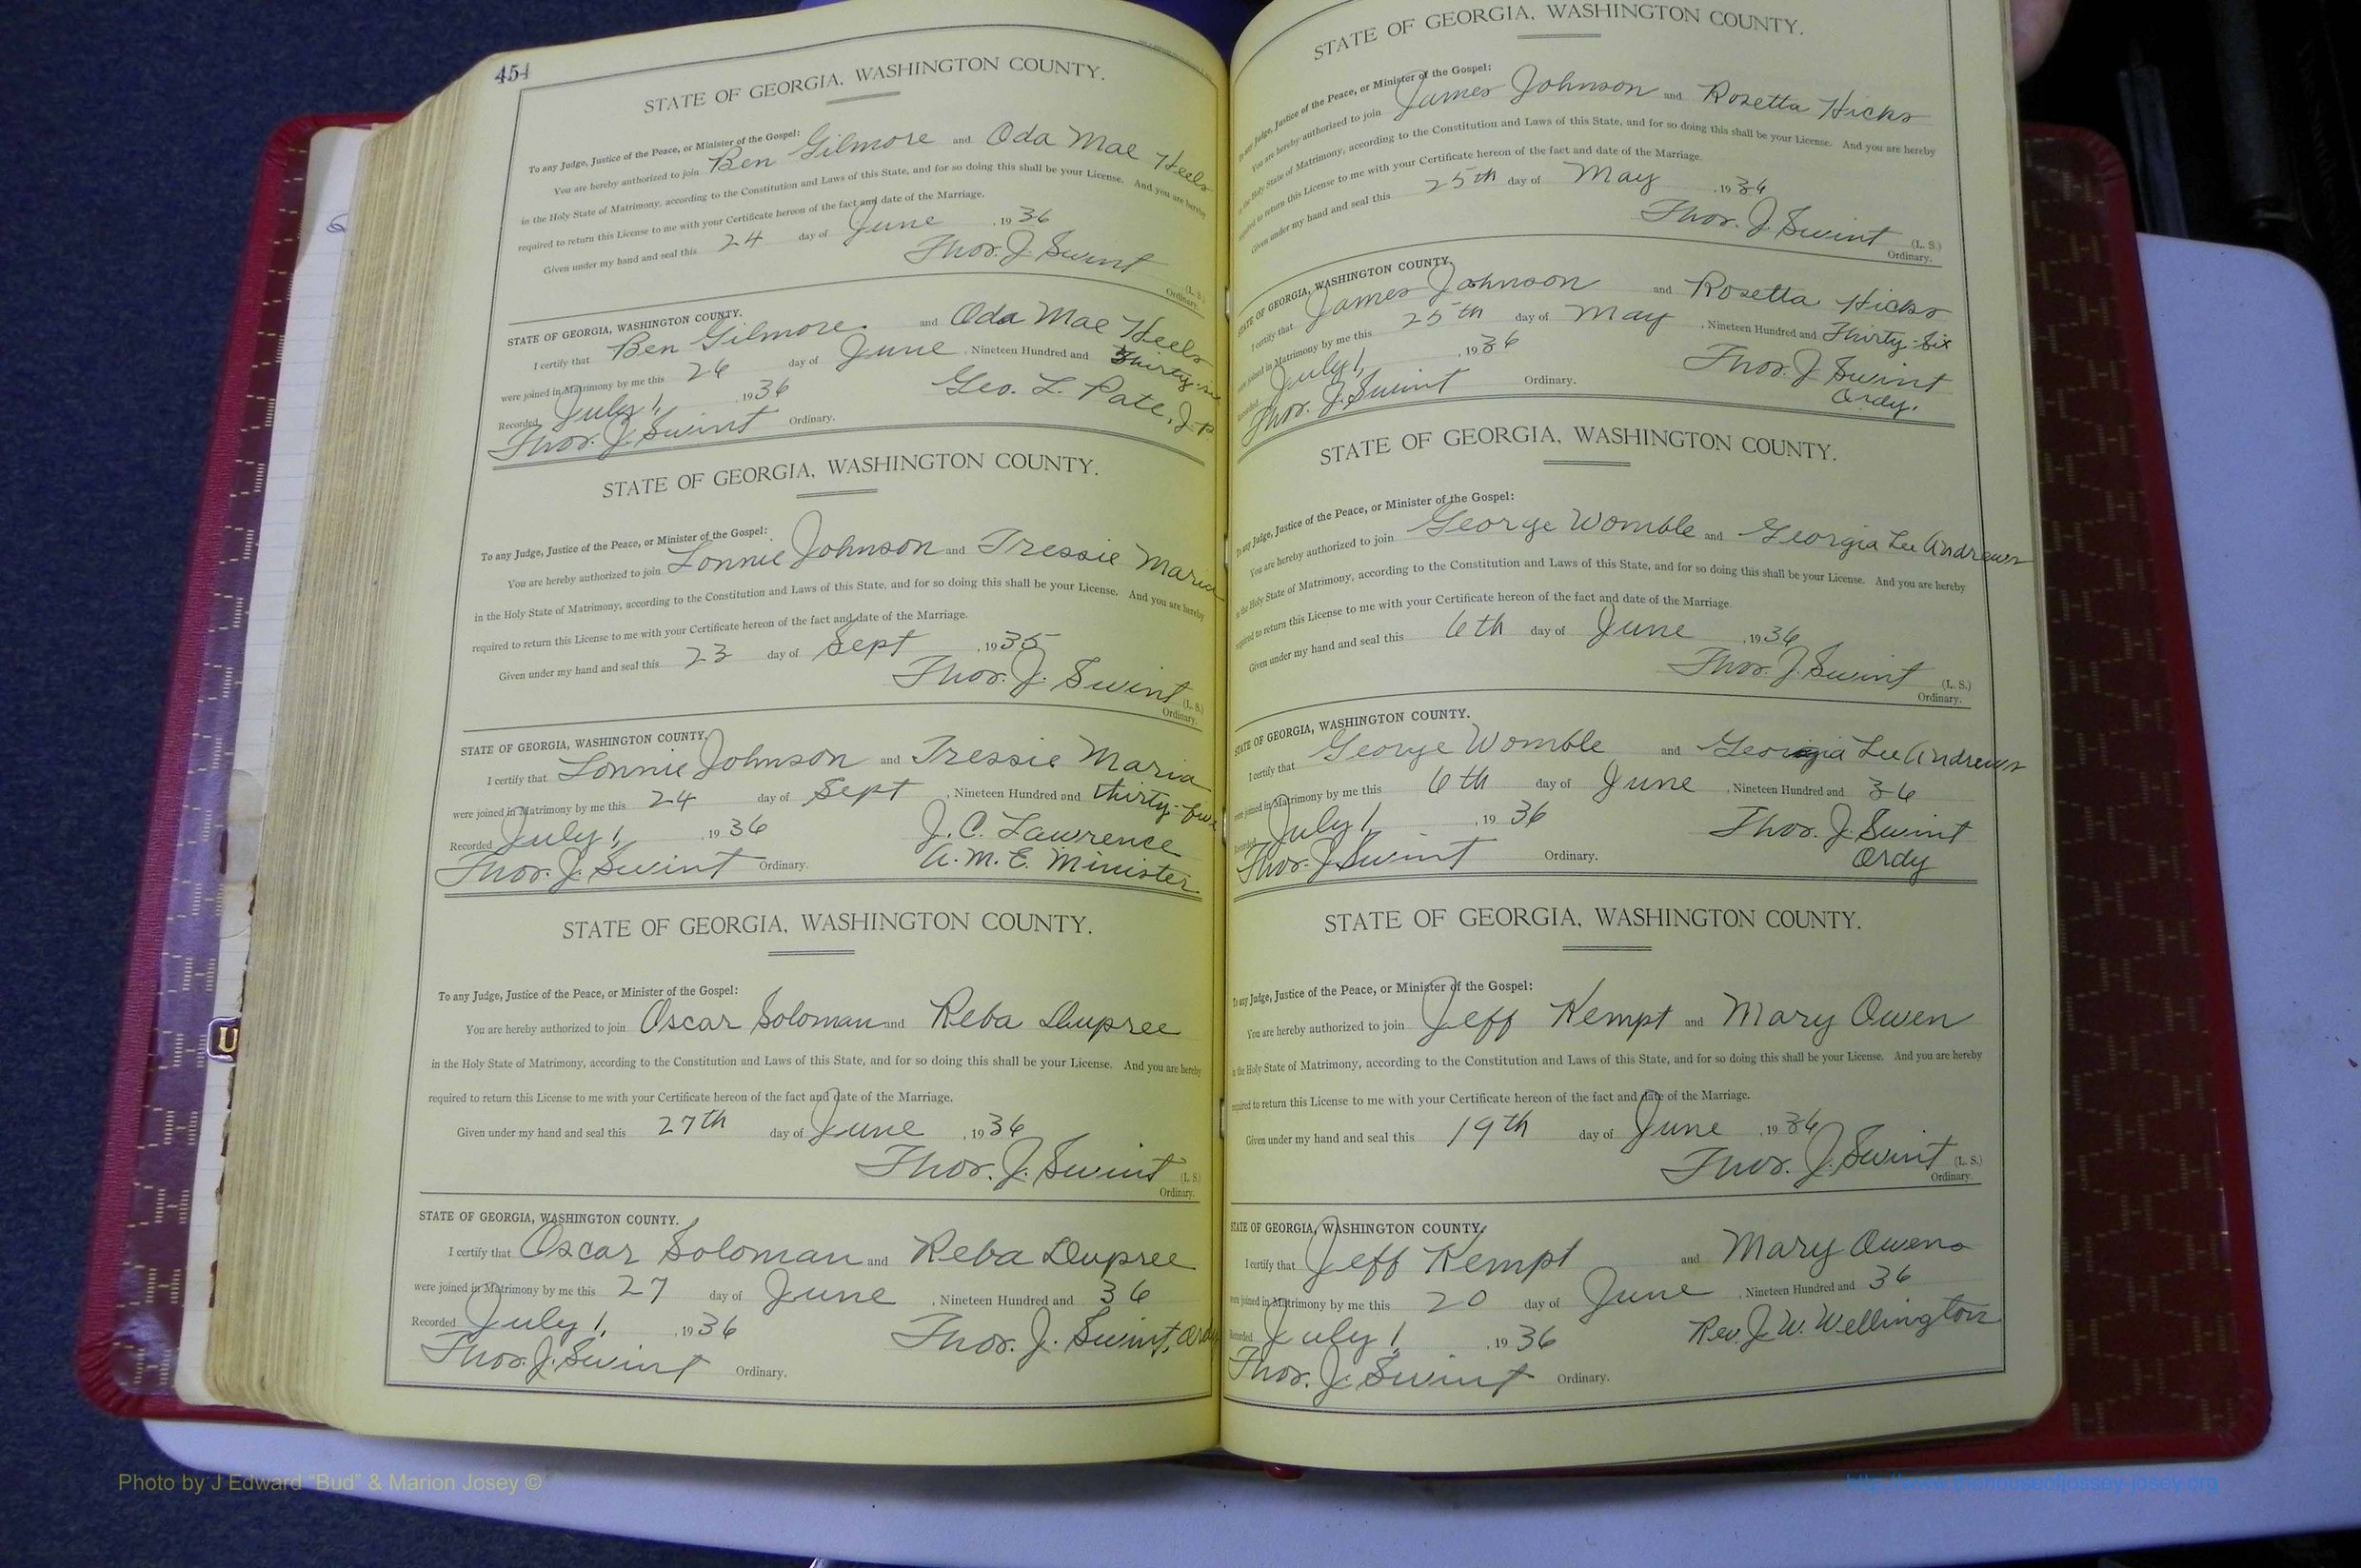 454
STATE OF GEORGIA, WASHINGTON COUNTY.
To any Judge, Justice of the Peace, or Minister of the Gospel:
You are hereby authorized to join Ben Gilmore and Oda Mae Heels
in the Holy State of Matrimony, according to the Constitution and Laws of this State, and for so doing this shall be your License. And you are hereby
required to return this License to me with your Certificate hereon of the fact and date of the Marriage.
Given under my hand and seal this 24 day of June, 1936
Thos. J. Swint (L. S.)
Ordinary.
STATE OF GEORGIA, WASHINGTON COUNTY.
I certify that Ben Gilmore and Oda Mae Heels
were joined in Matrimony by me this 26 day of June, Nineteen Hundred and Thirty-six
Recorded July 1, 1936 Geo. L. Pate, J.P.
Thos. J. Swint Ordinary.
STATE OF GEORGIA, WASHINGTON COUNTY.
To any Judge, Justice of the Peace, or Minister of the Gospel:
You are hereby authorized to join Lonnie Johnson and Tressie Maria
in the Holy State of Matrimony, according to the Constitution and Laws of this State, and for so doing this shall be your License. And you are hereby
required to return this License to me with your Certificate hereon of the fact and date of the Marriage.
Given under my hand and seal this 23 day of Sept, 1935
Thos. J. Swint (L. S.)
Ordinary.
STATE OF GEORGIA, WASHINGTON COUNTY.
I certify that Lonnie Johnson and Tressie Maria
were joined in Matrimony by me this 24 day of Sept, Nineteen Hundred and thirty-five
Recorded July 1, 1936 J. C. Lawrence
Thos. J. Swint Ordinary. A. M. E. Minister
STATE OF GEORGIA, WASHINGTON COUNTY.
To any Judge, Justice of the Peace, or Minister of the Gospel:
You are hereby authorized to join Oscar Soloman and Reba Dupree
in the Holy State of Matrimony, according to the Constitution and Laws of this State, and for so doing this shall be your License. And you are hereby
required to return this License to me with your Certificate hereon of the fact and date of the Marriage.
Given under my hand and seal this 27th day of June, 1936
Thos. J. Swint (L. S.)
Ordinary.
STATE OF GEORGIA, WASHINGTON COUNTY.
I certify that Oscar Soloman and Reba Dupree
were joined in Matrimony by me this 27 day of June, Nineteen Hundred and 36
Recorded July 1, 1936 Thos. J. Swint, Ordy
Thos. J. Swint Ordinary.
STATE OF GEORGIA, WASHINGTON COUNTY.
To any Judge, Justice of the Peace, or Minister of the Gospel:
You are hereby authorized to join James Johnson and Rosetta Hicks
in the Holy State of Matrimony, according to the Constitution and Laws of this State, and for so doing this shall be your License. And you are hereby
required to return this License to me with your Certificate hereon of the fact and date of the Marriage.
Given under my hand and seal this 25th day of May, 1936
Thos. J. Swint (L. S.)
Ordinary.
STATE OF GEORGIA, WASHINGTON COUNTY.
I certify that James Johnson and Rosetta Hicks
were joined in Matrimony by me this 25th day of May, Nineteen Hundred and Thirty-six
Recorded July 1, 1936 Thos. J. Swint
Thos. J. Swint Ordinary. Ordy.
STATE OF GEORGIA, WASHINGTON COUNTY.
To any Judge, Justice of the Peace, or Minister of the Gospel:
You are hereby authorized to join George Womble and Georgia Lee Andrews
in the Holy State of Matrimony, according to the Constitution and Laws of this State, and for so doing this shall be your License. And you are hereby
required to return this License to me with your Certificate hereon of the fact and date of the Marriage.
Given under my hand and seal this 6th day of June, 1936
Thos. J. Swint (L. S.)
Ordinary.
STATE OF GEORGIA, WASHINGTON COUNTY.
I certify that George Womble and Georgia Lee Andrews
were joined in Matrimony by me this 6th day of June, Nineteen Hundred and 36
Recorded July 1, 1936 Thos. J. Swint
Thos. J. Swint Ordinary. Ordy
STATE OF GEORGIA, WASHINGTON COUNTY.
To any Judge, Justice of the Peace, or Minister of the Gospel:
You are hereby authorized to join Jeff Kempt and Mary Owen
in the Holy State of Matrimony, according to the Constitution and Laws of this State, and for so doing this shall be your License. And you are hereby
required to return this License to me with your Certificate hereon of the fact and date of the Marriage.
Given under my hand and seal this 19th day of June, 1936
Thos. J. Swint (L. S.)
Ordinary.
STATE OF GEORGIA, WASHINGTON COUNTY.
I certify that Jeff Kempt and Mary Owens
were joined in Matrimony by me this 20 day of June, Nineteen Hundred and 36
Recorded July 1, 1936 Rev. J. W. Wellington
Thos. J. Swint Ordinary.
U
Photo by J Edward "Bud" & Marion Josey ©
http://www.thehouseofjossey-josey.org